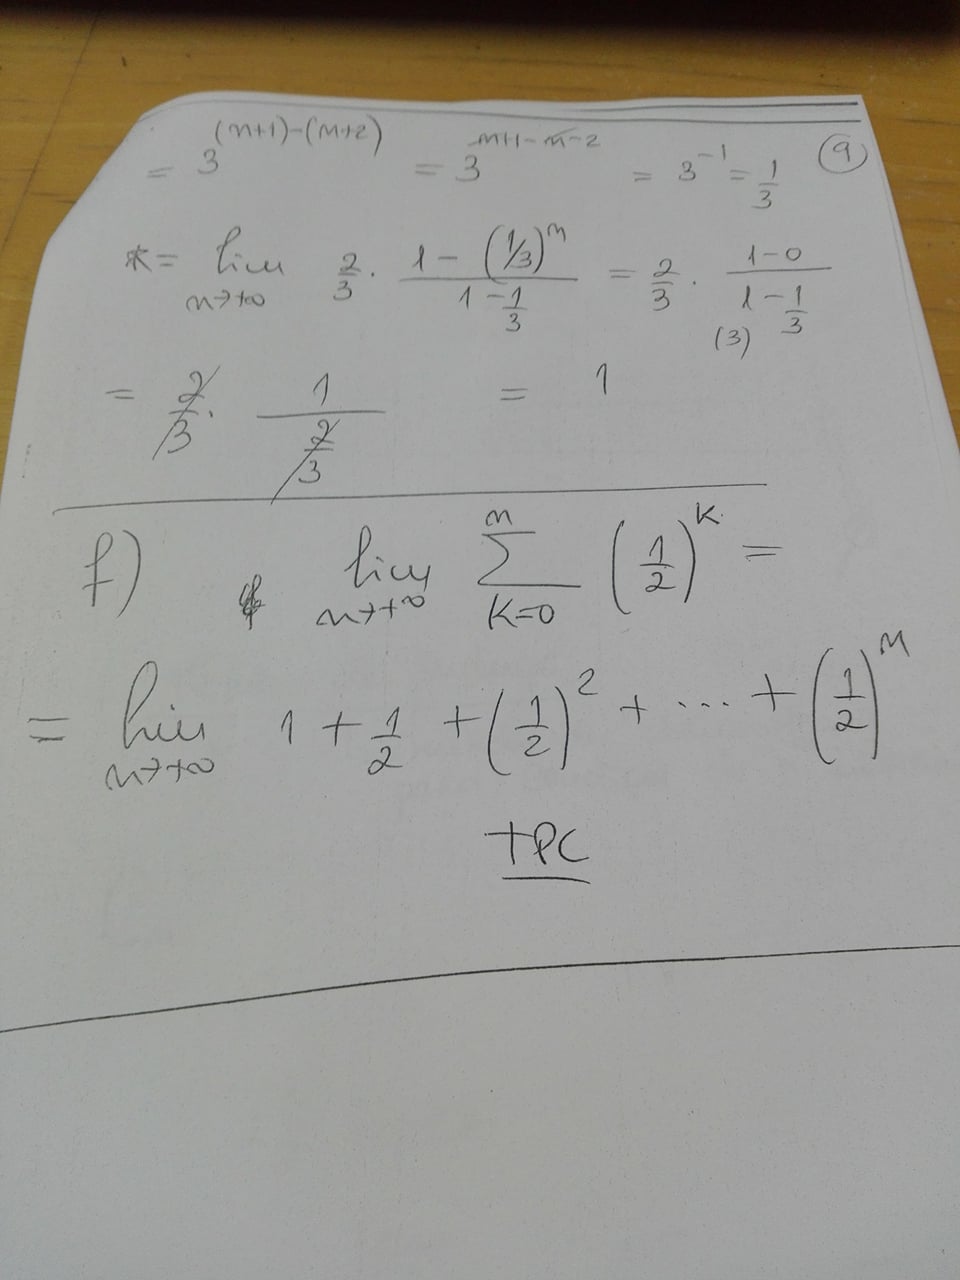 = 3^{(n+1)-(n+2)} = 3^{n+1-n-2} = 3^{-1} = \frac{1}{3} (9)
* = lim_{n→+∞} \frac{2}{3} · \frac{1-(1/3)^n}{1-\frac{1}{3}} = \frac{2}{3} · \frac{1-0}{1-\frac{1}{3}}
(3)
= \frac{2}{3} · \frac{1}{\frac{2}{3}} = 1
f) lim_{n→+∞} \sum_{K=0}^{n} (\frac{1}{2})^K =
= lim_{n→+∞} 1 + \frac{1}{2} + (\frac{1}{2})^2 + ... + (\frac{1}{2})^n
TPC